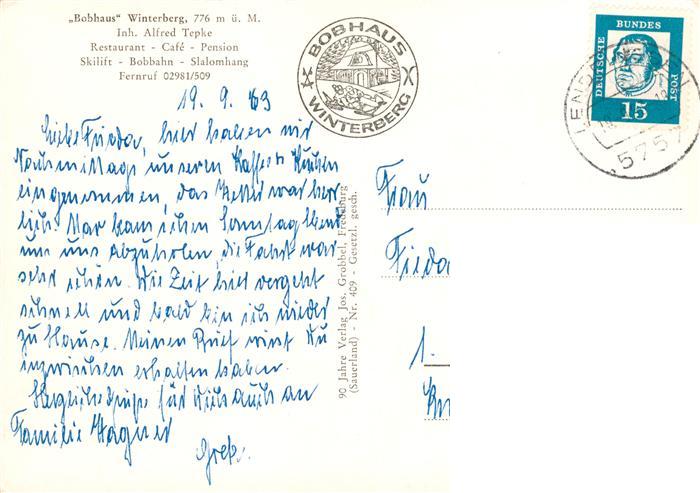 „Bobhaus" Winterberg, 776 m ü. M.
Inh. Alfred Tepke
Restaurant - Café - Pension
Skilift - Bobbahn - Slalomhang
Fernruf 02981/509
BOBHAUS
WINTERBERG
DEUTSCHE BUNDES POST
15
5757
19. 9. 63
Liebe Frieda, hier haben wir
Nachmittags unseren Kaffee Kuchen
eingenommen, das Wetter war herr
lich. kam schon Sonntag
um uns abzuholen, die Fahrt war
sehr schön. Die Zeit hier vergeht
schnell und bald bin ich wieder
zu Hause. Meinen Brief wirst Du
inzwischen erhalten haben.
Herzliche Grüße für Dich auch an
Familie Wagner
Grete.
90 Jahre Verlag Jos. Grobbel, Fredeburg
(Sauerland) - Nr. 409 - Gesetzl. gesch.
Frau
Frieda
1.